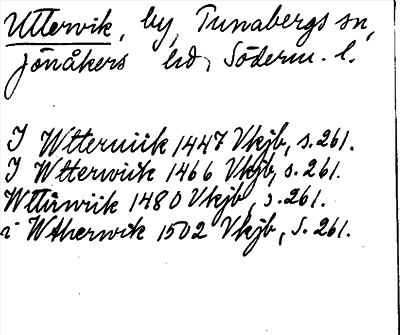 Uttervik, by, Tunabergs sn,
Jönåkers hd, Söderm. l.
I Wtteruiik 1447 Vkjb, s. 261.
I Wtterwiik 1466 Vkjb, s. 261.
Wttirwiik 1480 Vkjb, s. 261.
i Wtherwik 1502 Vkjb, s. 261.